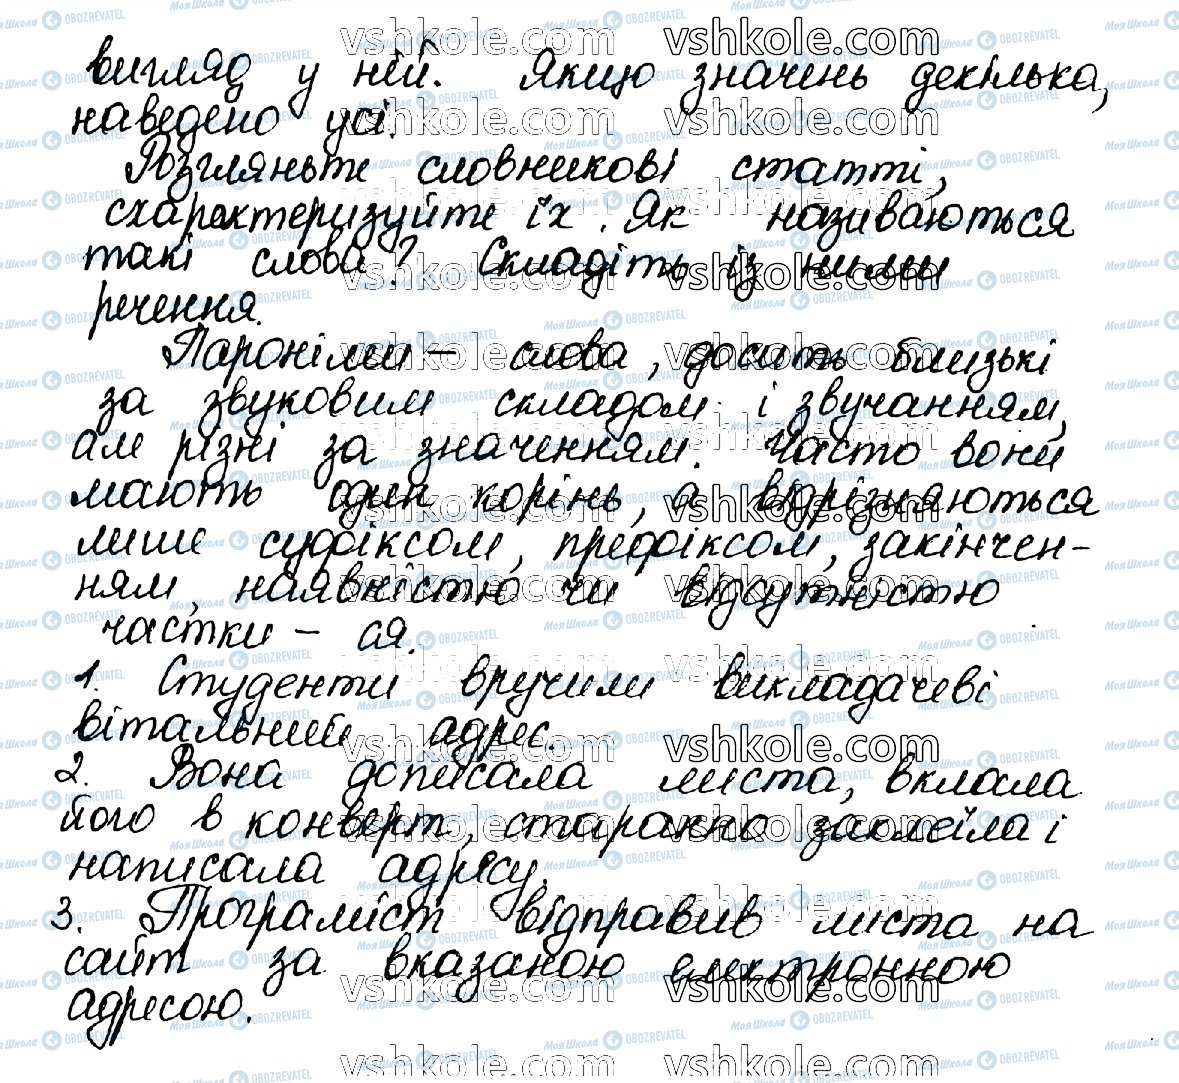 вигляд у ній. Якщо значень декілька,
наведено усі.
Розгляньте словникові статті,
схарактеризуйте їх. Як називаються
такі слова? Складіть із ними
речення.
Пароніми – слова, досить близькі
за звуковим складом і звучанням,
але різні за значенням. Часто вони
мають один корінь, а відрізняються
лише суфіксом, префіксом, закінчен-
ням, наявністю чи відсутністю
частки – ся.
1. Студенти вручили викладачеві
вітальний адрес.
2. Вона дописала листа, вклала
його в конверт, старанно заклеїла і
написала адресу.
3. Програміст відправив листа на
сайт за вказаною електронною
адресою.